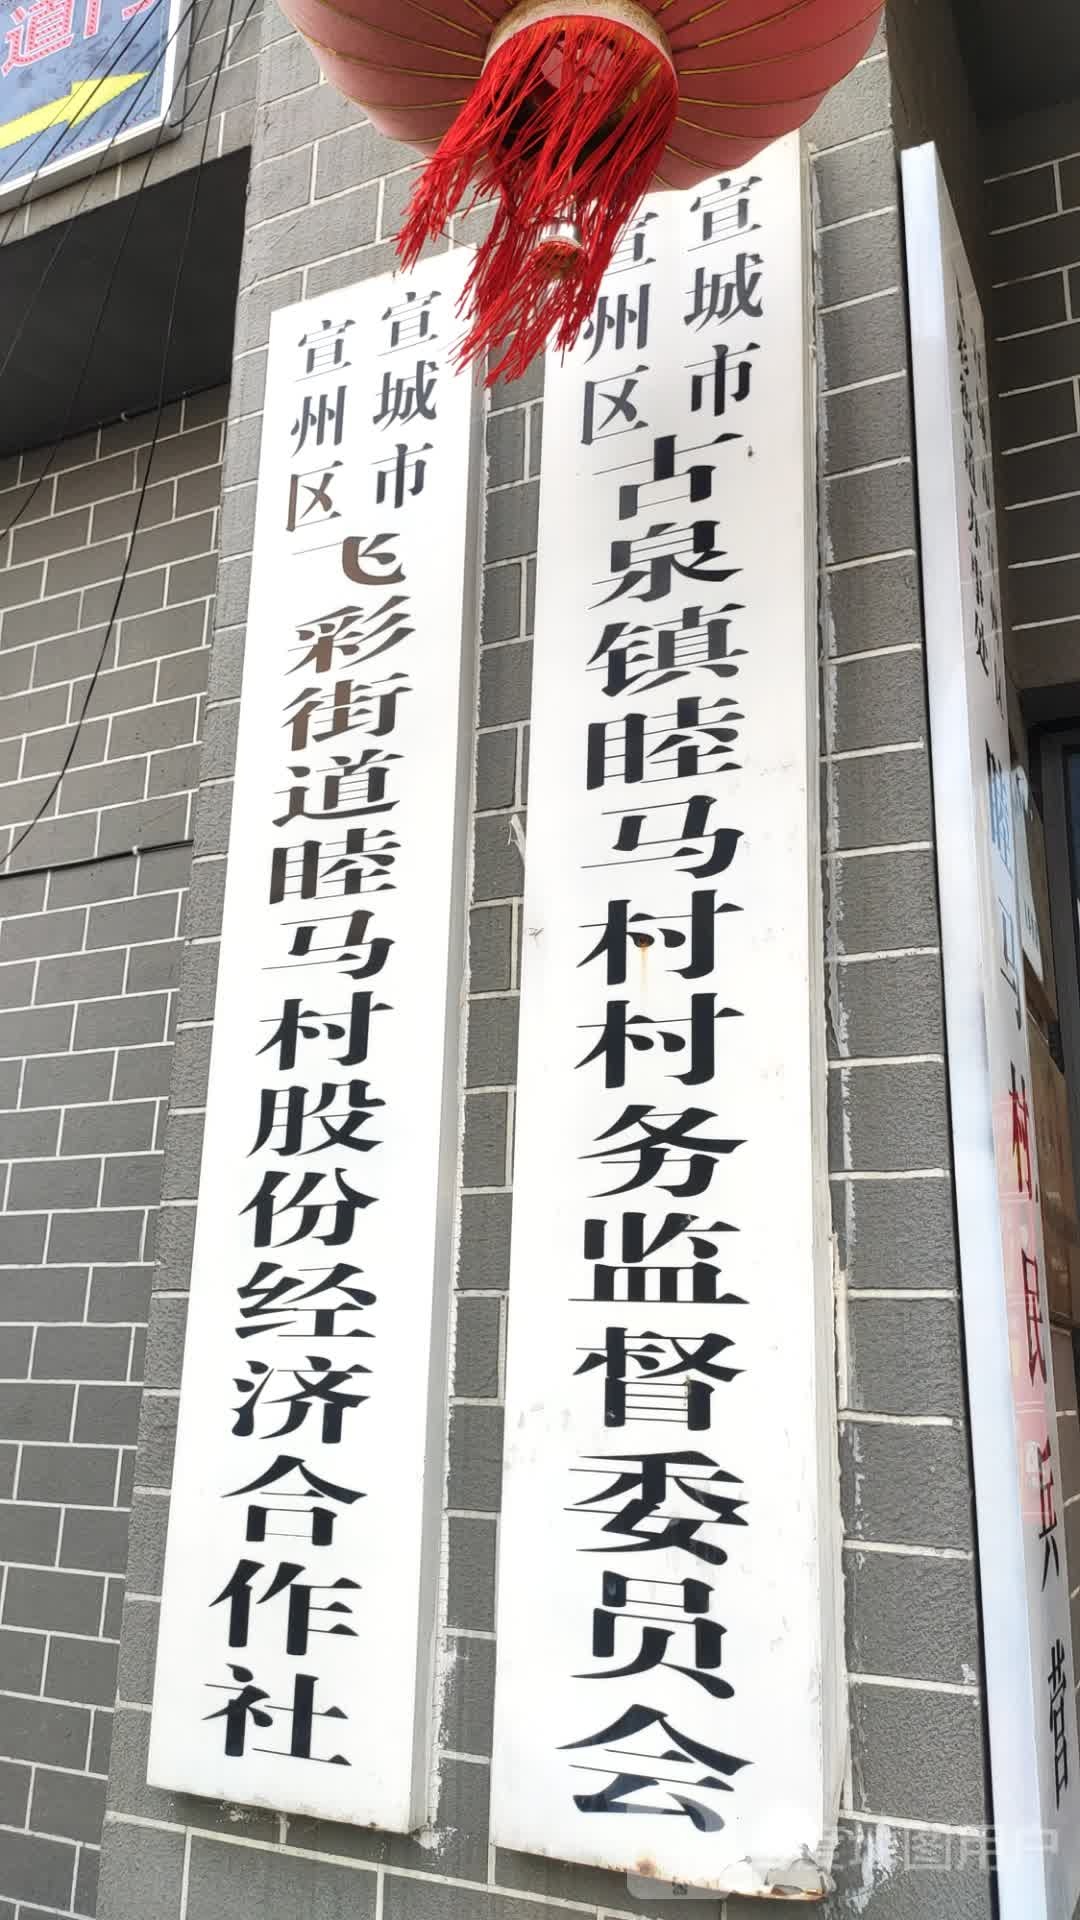 宣城市
宣州区
飞彩街道睦马村股份经济合作社
宣城市
宣州区
古泉镇睦马村村务监督委员会
睦马村民兵营
道